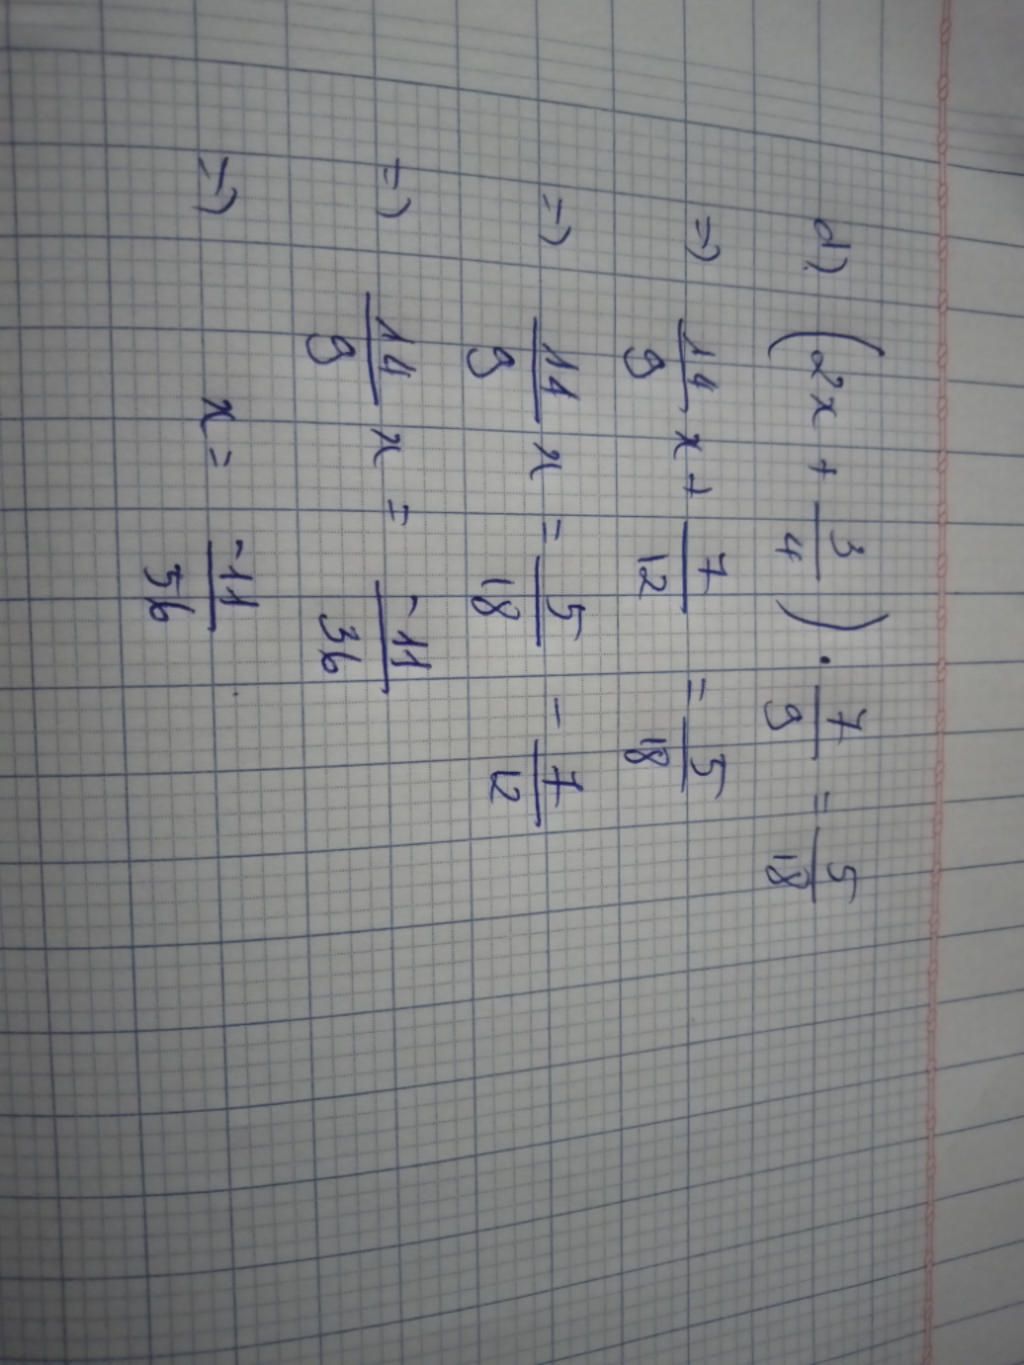 d) (2x + 3/4) . 7/9 = 5/18
=) 14/9 x + 7/12 = 5/18
=) 14/9 x = 5/18 - 7/12
=) 14/9 x = -11/36
=) x = -11/56